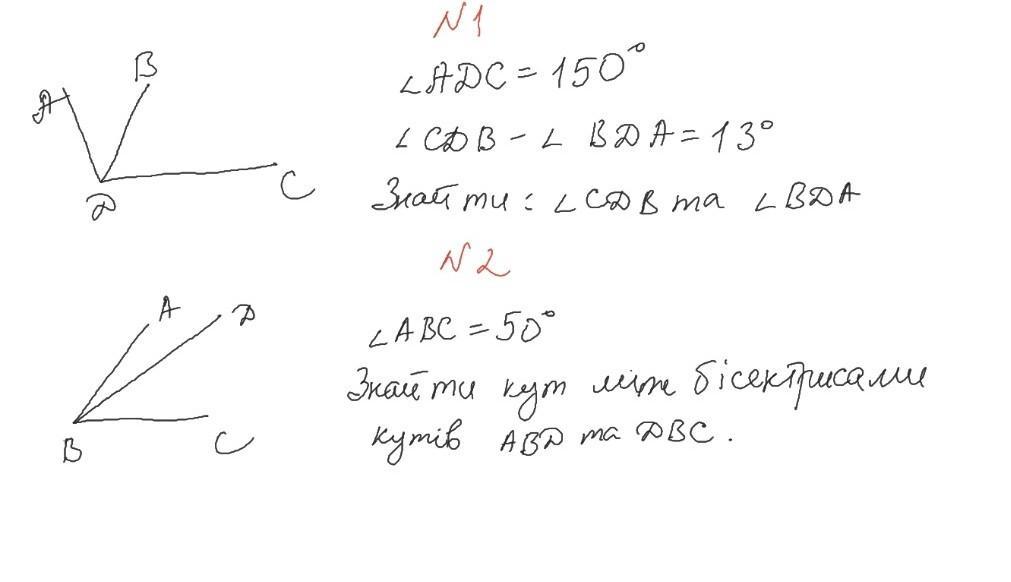 N1
A
B
D
C
∠ADC = 150°
∠CDB - ∠ BDA = 13°
Знайти : ∠CDB та ∠BDA
N2
A
D
B
C
∠ABC = 50°
Знайти кут між бісектрисами
кутів ABD та DBC.